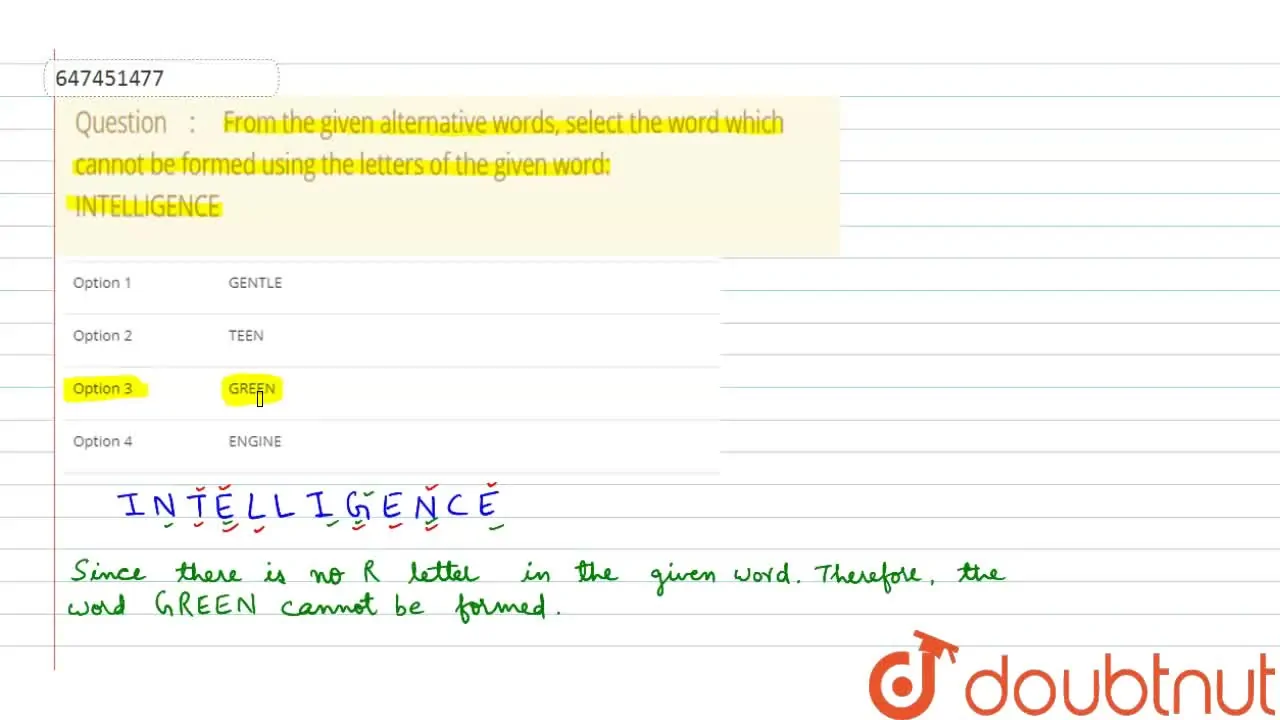 647451477
Question : From the given alternative words, select the word which
cannot be formed using the letters of the given word:
INTELLIGENCE
Option 1 GENTLE
Option 2 TEEN
Option 3 GREEN
Option 4 ENGINE
INTELLIGENCE
Since there is no R letter in the given word. Therefore, the
word GREEN cannot be formed.
doubtnut